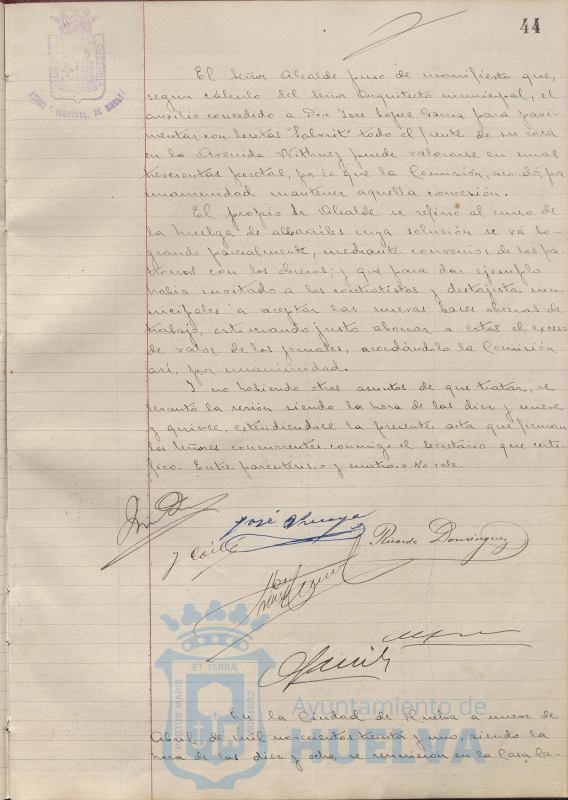 44
El Señor Alcalde puso de manifiesto que,
segun cálculo del Señor Arquitecto municipal, el
auxilio concedido a Don Jose Lopez Garcia para pavi-
mentar con losetas "Salmit" todo el frente de su casa
en la Avenida Withney puede valorarse en unas
trescientas pesetas, por lo que la Comisión, acordó, por
unanimidad mantener aquella concesión.
El propio Sr Alcalde se refirió al curso de
la huelga de albañiles cuya solución se vá lo-
grando parcialmente, mediante convenios de los pa-
tronos con los obreros; y que para dar ejemplo
habia invitado a los contratistas y destajista mu-
nicipales a aceptar las nuevas bases obreras de
trabajo, estimando justo abonar a estos el exceso
de valor de los jornales, acordándolo la Comisión
asi, por unanimidad.
Y no habiendo otros asuntos de que tratar, se
levantó la sesión siendo la hora de las diez y nueve
y quince, extendiendose la presente acta que firman
los Señores concurrentes conmigo el Secretario que certi-
fico. Entre parentesis = y cuatro = No vale.
José
Ricardo Dominguez
ET TERRÆ
PORTUS MARIS
CUSTODIA
Ayuntamiento de
HUELVA
En la Ciudad de Huelva a nueve de
Abril de mil novecientos treinta y uno, siendo la
hora de las diez y ocho, se reunieron en la Casa Ca-